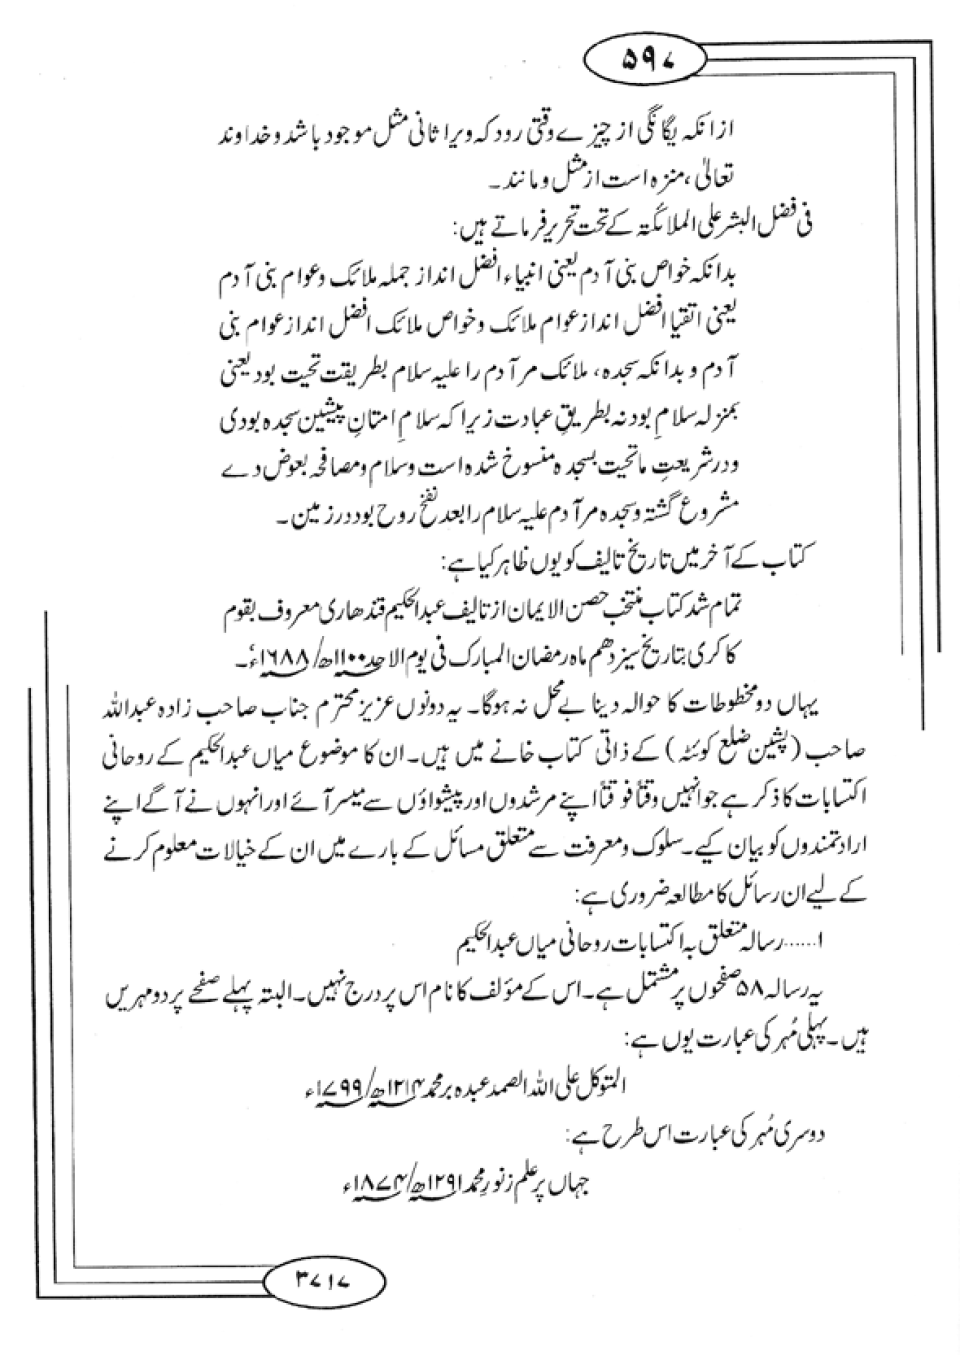 ۵۹۷
ازانکہ یگانگی از چیزے وقتی رود کہ ویرا ثانی مثل موجود باشد و خداوند
تعالیٰ، منزہ است از مثل و مانند۔
فی فضل البشر علی الملائکتہ کے تحت تحریر فرماتے ہیں:
بدانکہ خواص بنی آدم یعنی انبیاء افضل انداز جملہ ملائک و عوام بنی آدم
یعنی اتقیا افضل انداز عوام ملائک و خواص ملائک افضل انداز عوام بنی
آدم و بدانکہ سجدہ، ملائک مر آدم را علیہ سلام بطریقت تحیت بود یعنی
بمنزلہ سلامِ بود نہ بطریقِ عبادت زیرا کہ سلامِ امتانِ پیشین سجدہ بودی
و در شریعتِ ما تحیت بسجدہ منسوخ شدہ است و سلام و مصافحہ بعوض دے
مشروع گشتہ و سجدہ مر آدم علیہ سلام را بعد نفخ روح بود در زمین۔
کتاب کے آخر میں تاریخ تالیف کو یوں ظاہر کیا ہے:
تمام شد کتاب منتخب حصن الایمان از تالیف عبدالحکیم قندھاری معروف بقوم
کاکری بتاریخ سیزدھم ماہ رمضان المبارک فی یوم الاحد ۱۱۰۰ھ/۱۶۸۸ء۔
یہاں دو مخطوطات کا حوالہ دینا بے محل نہ ہوگا۔ یہ دونوں عزیز محترم جناب صاحب زادہ عبداللہ
صاحب (پشین ضلع کوئٹہ) کے ذاتی کتاب خانے میں ہیں۔ ان کا موضوع میاں عبدالحکیم کے روحانی
اکتسابات کا ذکر ہے جو انہیں وقتاً فوقتاً اپنے مرشدوں اور پیشواؤں سے میسر آئے اور انہوں نے آگے اپنے
ارادتمندوں کو بیان کیے۔ سلوک و معرفت سے متعلق مسائل کے بارے میں ان کے خیالات معلوم کرنے
کے لیے ان رسائل کا مطالعہ ضروری ہے:
۱......رسالہ متعلق بہ اکتسابات روحانی میاں عبدالحکیم
یہ رسالہ ۵۸ صفحوں پر مشتمل ہے۔ اس کے مؤلف کا نام اس پر درج نہیں۔ البتہ پہلے صفحے پر دو مہریں
ہیں۔ پہلی مُہر کی عبارت یوں ہے:
المتوکل علی اللہ الصمد عبدہ بر محمد ۱۲۱۴ھ/۱۷۹۹ء
دوسری مُہر کی عبارت اس طرح ہے:
جہاں پر علم ز نورِ محمد ۱۲۹۱ھ/۱۸۷۴ء
۳۷۱۷